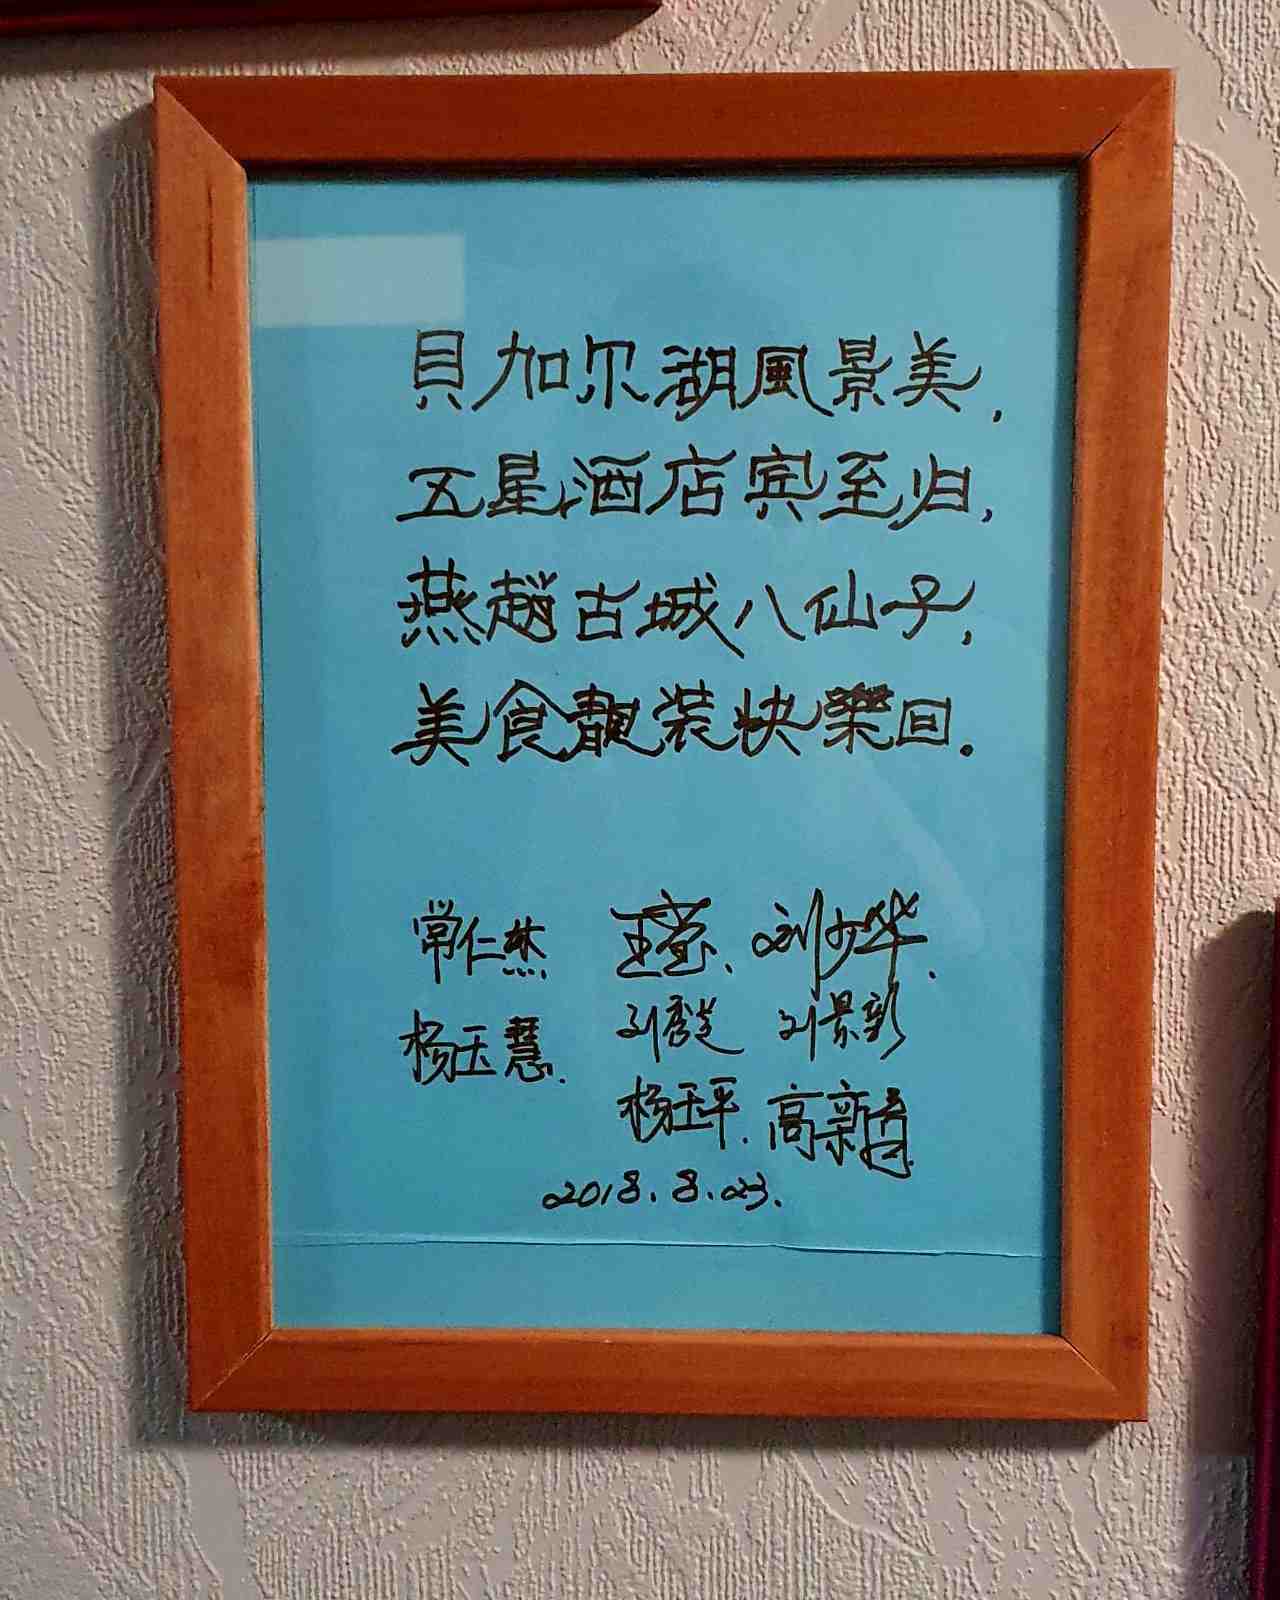 貝加尔湖風景美,
五星酒店宾至归,
燕趙古城八仙子,
美食靚装快樂回。
常仁杰 刘少华.
杨玉慧. 刘秀芝 刘景彩
杨玉平. 高新
2018.8.23.